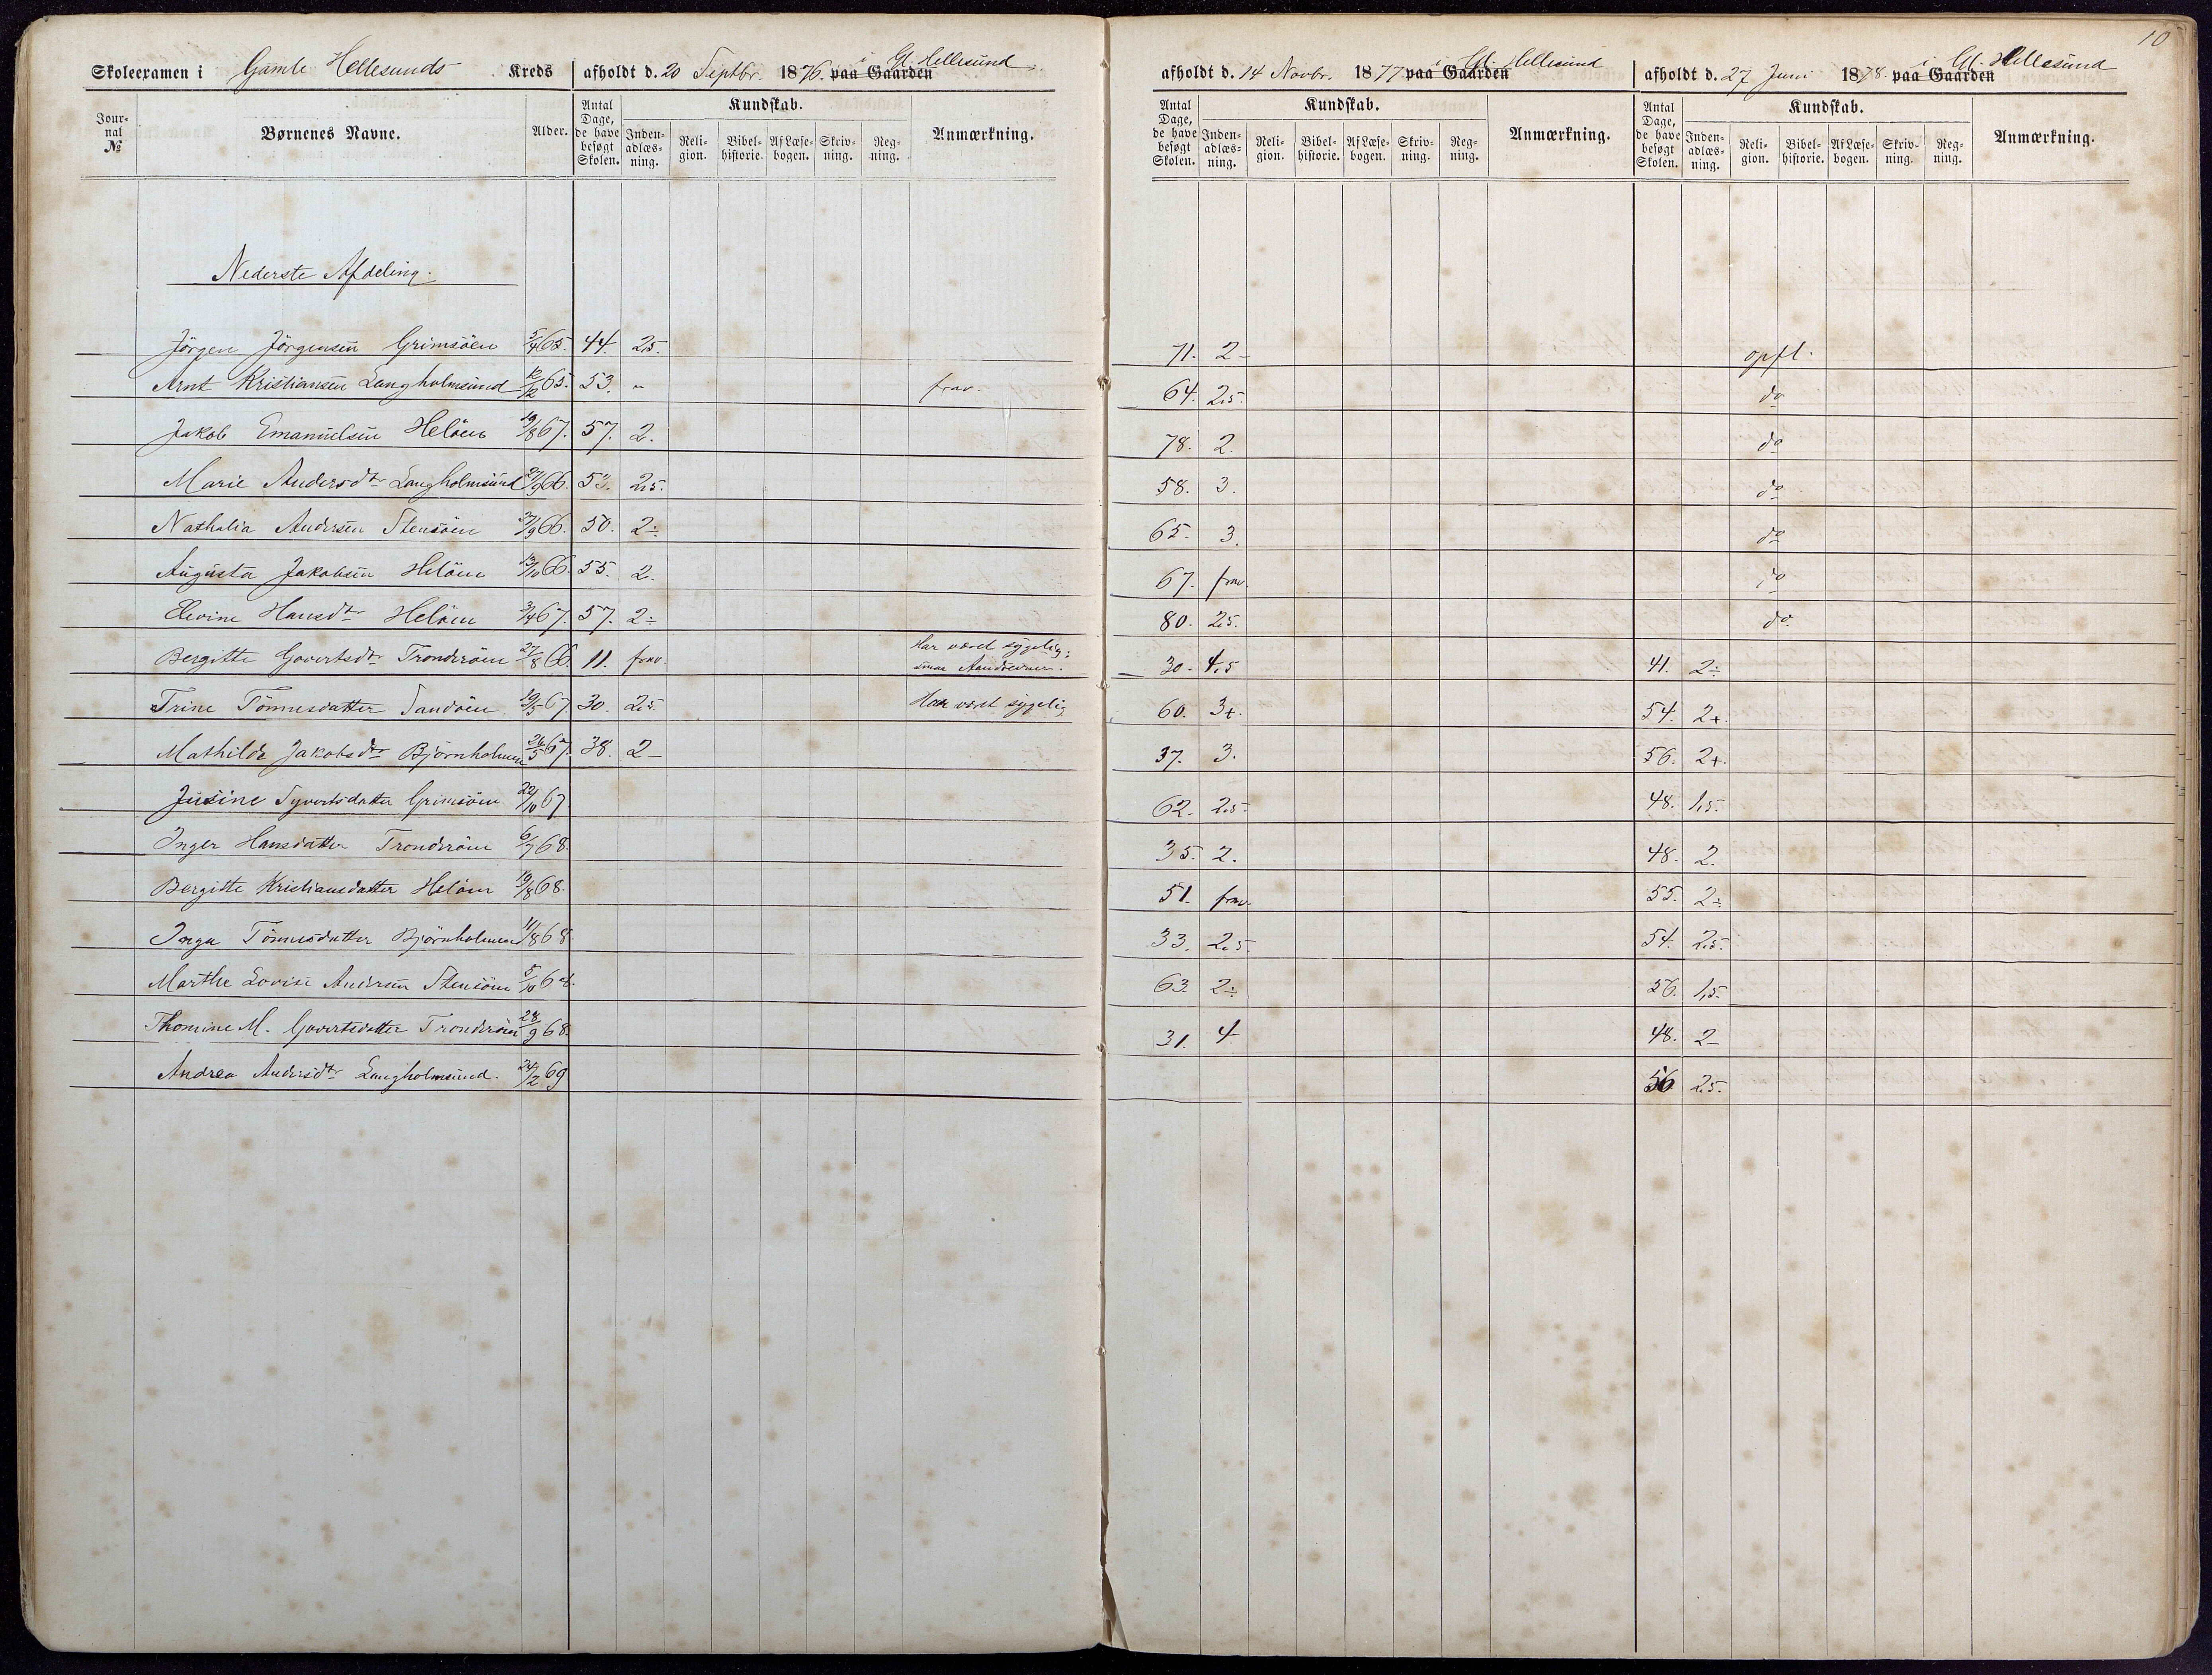 10
Skoleexamen i Gamle Hellesunds Kreds afholdt d. 20 Septbr. 1876. paa Gaarden i Gl. Hellesund
afholdt d. 14 Novbr. 1877 paa Gaarden i Gl. Hellesund
afholdt d. 27 Juni 1878. paa Gaarden i Gl. Hellesund
Jour-nal № Børnenes Navne. Alder. Antal Dage, de have besøgt Skolen. Kundskab. Inden-adlæs-ning. Reli-gion. Bibel-historie. Af Læse-bogen. Skriv-ning. Reg-ning. Anmærkning.
Antal Dage, de have besøgt Skolen. Kundskab. Inden-adlæs-ning. Reli-gion. Bibel-historie. Af Læse-bogen. Skriv-ning. Reg-ning. Anmærkning.
Antal Dage, de have besøgt Skolen. Kundskab. Inden-adlæs-ning. Reli-gion. Bibel-historie. Af Læse-bogen. Skriv-ning. Reg-ning. Anmærkning.
Nederste Afdeling.
Jörgen Jörgensen Grimsöen 5/4 65. 44. 2,5. 71. 2- opfl.
Arnt Kristiansen Langholmsund 12/12 65. 53. " frav. 64. 2,5. do
Jakob Emanuelsen Helöen 19/8 67. 57. 2. 78. 2. do
Marie Andersdtr Langholmsund 27/9 66. 53. 2,5. 58. 3. do
Nathalia Andersen Stensöen 27/9 66. 50. 2÷ 65. 3. do
Augusta Jakobsen Helöen 13/10 66. 55. 2. 67. frav. do
Elevine Hansdtr Helöen 3/4 67. 57. 2÷ 80. 2,5. do.
Bergitte Govertsdtr Trondsöen 27/8 66. 11. frav. Har været sygelig; smaa Aandsevner. 30. 4,5 41. 2÷
Trine Tönnesdatter Sandöen 19/5 67 30. 2,5. Har været sygelig 60. 3+. 54. 2+.
Mathilde Jakobsdtr Björnholmen 26/5 67. 38. 2- 37. 3. 56. 2+.
Jusine Syvertsdatter Grimsöen 22/10 67 62. 2,5. 48. 1,5.
Inger Hansdatter Trondsöen 6/7 68. 35. 2. 48. 2.
Bergitte Kristiansdatter Helöen 19/8 68. 51. frav. 55. 2÷
Inga Tönnesdatter Björnholmen 11/8 68. 33. 2,5. 54. 2,5.
Marthe Lovise Andersen Stensöen 5/10 68. 63. 2÷ 56. 1,5.
Thomine M. Govertsdatter Trondsöen 28/9 68. 31. 4 48. 2-
Andrea Andersdtr Langholmsund. 24/2 69 56 2,5.